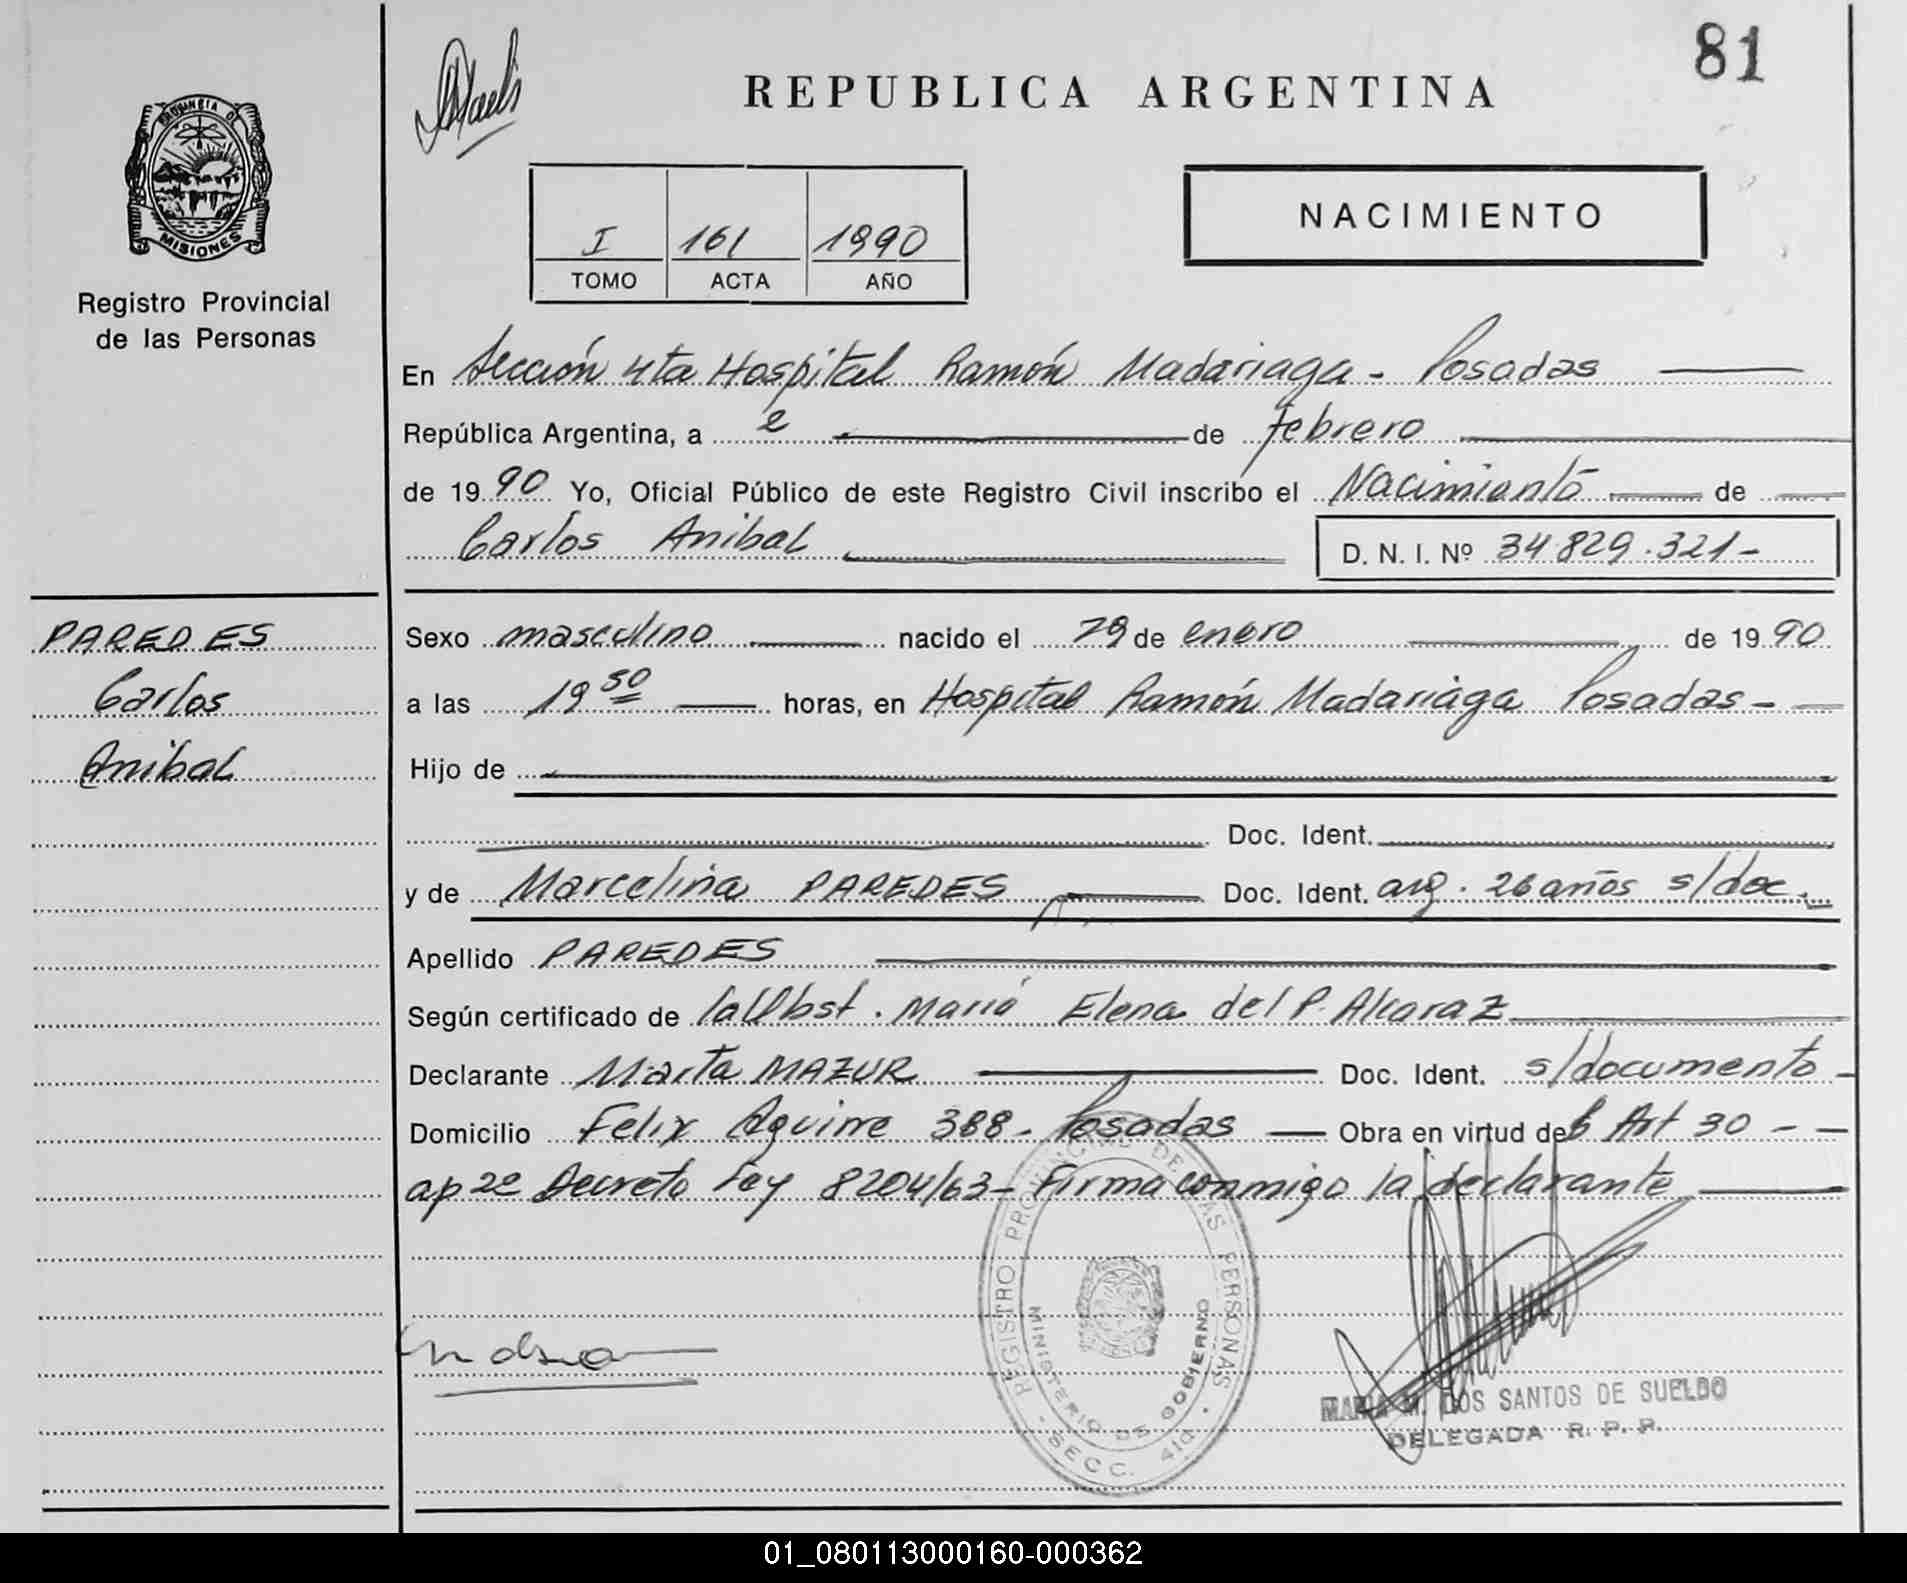 81
REPUBLICA ARGENTINA
PROVINCIA DE
MISIONES
Registro Provincial
de las Personas
I 161 1990
TOMO ACTA AÑO
NACIMIENTO
En Sección 4ta Hospital Ramón Madariaga - Posadas
República Argentina, a 2 de febrero
de 1990 Yo, Oficial Público de este Registro Civil inscribo el Nacimiento de
Carlos Anibal D. N. I. Nº 34.829.321-
PAREDES
Carlos
Anibal
Sexo masculino nacido el 29 de enero de 1990
a las 19 50 horas, en Hospital Ramón Madariaga Posadas -
Hijo de
Doc. Ident.
y de Marcelina PAREDES Doc. Ident. arg. 26 años s/doc.
Apellido PAREDES
Según certificado de la Obst. Maria Elena del P. Alcaraz
Declarante Marta MAZUR Doc. Ident. s/documento -
Domicilio Felix Aguirre 388 - Posadas Obra en virtud de Art 30 - -
ap 2º Decreto Ley 8204/63 - Firma conmigo la declarante
REGISTRO PROVINCIAL DE LAS PERSONAS
MINISTERIO DE GOBIERNO
SECC. 4ta.
MARIA M. DOS SANTOS DE SUELDO
DELEGADA R. P. P.
01_080113000160-000362